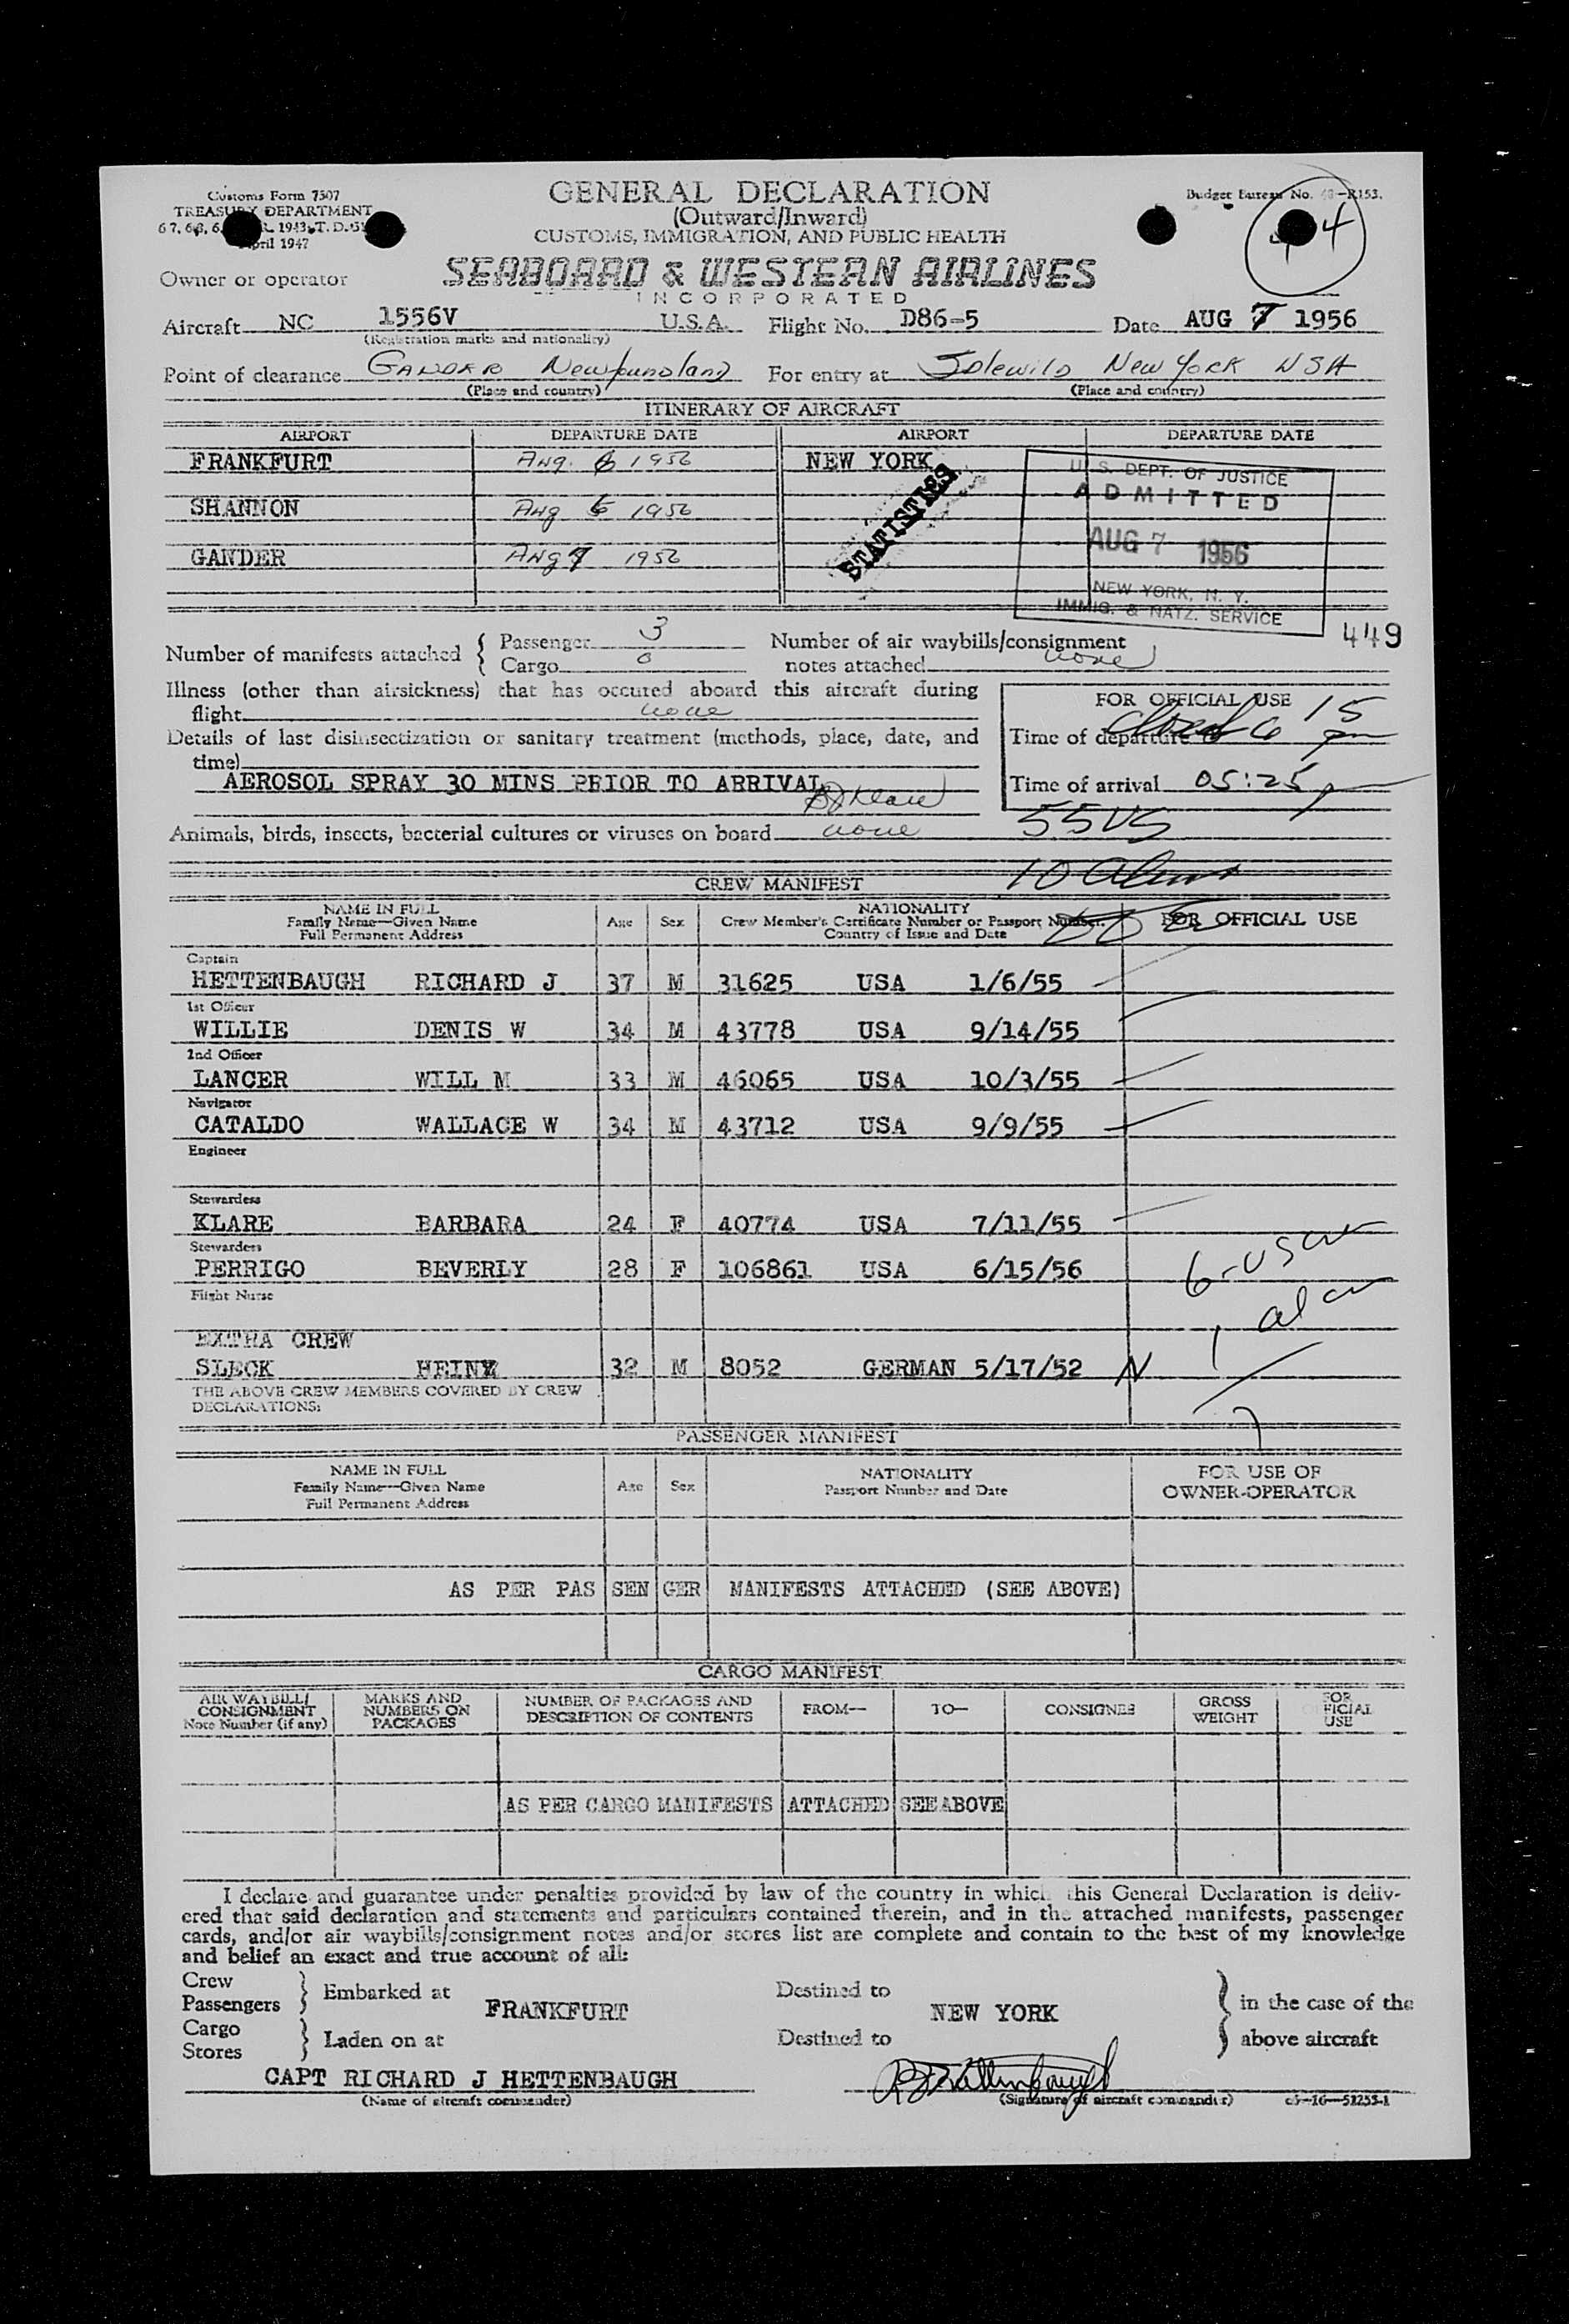 Customs Form 7507
TREASURY DEPARTMENT
1943, T. D. 51
April 1947
GENERAL DECLARATION
(Outward/Inward)
CUSTOMS, IMMIGRATION, AND PUBLIC HEALTH
Budget Bureau No. -R153.
44
Owner or operator
SEABOARD & WESTERN AIRLINES
INCORPORATED
Aircraft NC 1556V U.S.A. Flight No. D86-5 Date AUG 7 1956
(Registration marks and nationality)
Point of clearance GANDER Newfoundland For entry at Idlewild New York USA
(Place and country) (Place and country)
ITINERARY OF AIRCRAFT
AIRPORT DEPARTURE DATE AIRPORT DEPARTURE DATE
FRANKFURT Aug. 6 1956 NEW YORK
SHANNON Aug 6 1956
GANDER Aug 7 1956
STATISTICS
U. S. DEPT. OF JUSTICE
ADMITTED
AUG 7 1956
NEW YORK, N. Y.
IMMIG. & NATZ. SERVICE
449
Number of manifests attached { Passenger 3
Cargo 0
Number of air waybills/consignment
notes attached none
Illness (other than airsickness) that has occured aboard this aircraft during
flight none
Details of last disinsectization or sanitary treatment (methods, place, date, and
time)
AEROSOL SPRAY 30 MINS PRIOR TO ARRIVAL
BJ Klare
Animals, birds, insects, bacterial cultures or viruses on board none
FOR OFFICIAL USE
Time of departure closed 6 15 pm
Time of arrival 05:25 p
55 US
10 Aliens
CREW MANIFEST
NAME IN FULL
Family Name—Given Name
Full Permanent Address
Age Sex
NATIONALITY
Crew Member's Certificate Number or Passport Number.
Country of Issue and Date
FOR OFFICIAL USE
Captain
HETTENBAUGH RICHARD J 37 M 31625 USA 1/6/55
1st Officer
WILLIE DENIS W 34 M 43778 USA 9/14/55
2nd Officer
LANCER WILL M 33 M 46065 USA 10/3/55
Navigator
CATALDO WALLACE W 34 M 43712 USA 9/9/55
Engineer
Stewardess
KLARE BARBARA 24 F 40774 USA 7/11/55
Stewardess
PERRIGO BEVERLY 28 F 106861 USA 6/15/56
6-USC
Flight Nurse
1 al
EXTRA CREW
SLECK HEINZ 32 M 8052 GERMAN 5/17/52 N
7
THE ABOVE CREW MEMBERS COVERED BY CREW
DECLARATIONS:
PASSENGER MANIFEST
NAME IN FULL
Family Name—Given Name
Full Permanent Address
Age Sex
NATIONALITY
Passport Number and Date
FOR USE OF
OWNER-OPERATOR
AS PER PAS SEN GER MANIFESTS ATTACHED (SEE ABOVE)
CARGO MANIFEST
AIR WAYBILL/
CONSIGNMENT
Note Number (if any)
MARKS AND
NUMBERS ON
PACKAGES
NUMBER OF PACKAGES AND
DESCRIPTION OF CONTENTS
FROM—
TO—
CONSIGNEE
GROSS
WEIGHT
FOR
OFFICIAL
USE
AS PER CARGO MANIFESTS ATTACHED SEE ABOVE
I declare and guarantee under penalties provided by law of the country in which this General Declaration is deliv-
ered that said declaration and statements and particulars contained therein, and in the attached manifests, passenger
cards, and/or air waybills/consignment notes and/or stores list are complete and contain to the best of my knowledge
and belief an exact and true account of all:
Crew
Passengers } Embarked at FRANKFURT Destined to NEW YORK } in the case of the
Cargo
Stores } Laden on at Destined to } above aircraft
CAPT RICHARD J HETTENBAUGH RJ Hettenbaugh
(Name of aircraft commander) (Signature of aircraft commander) c3-16-51255-1